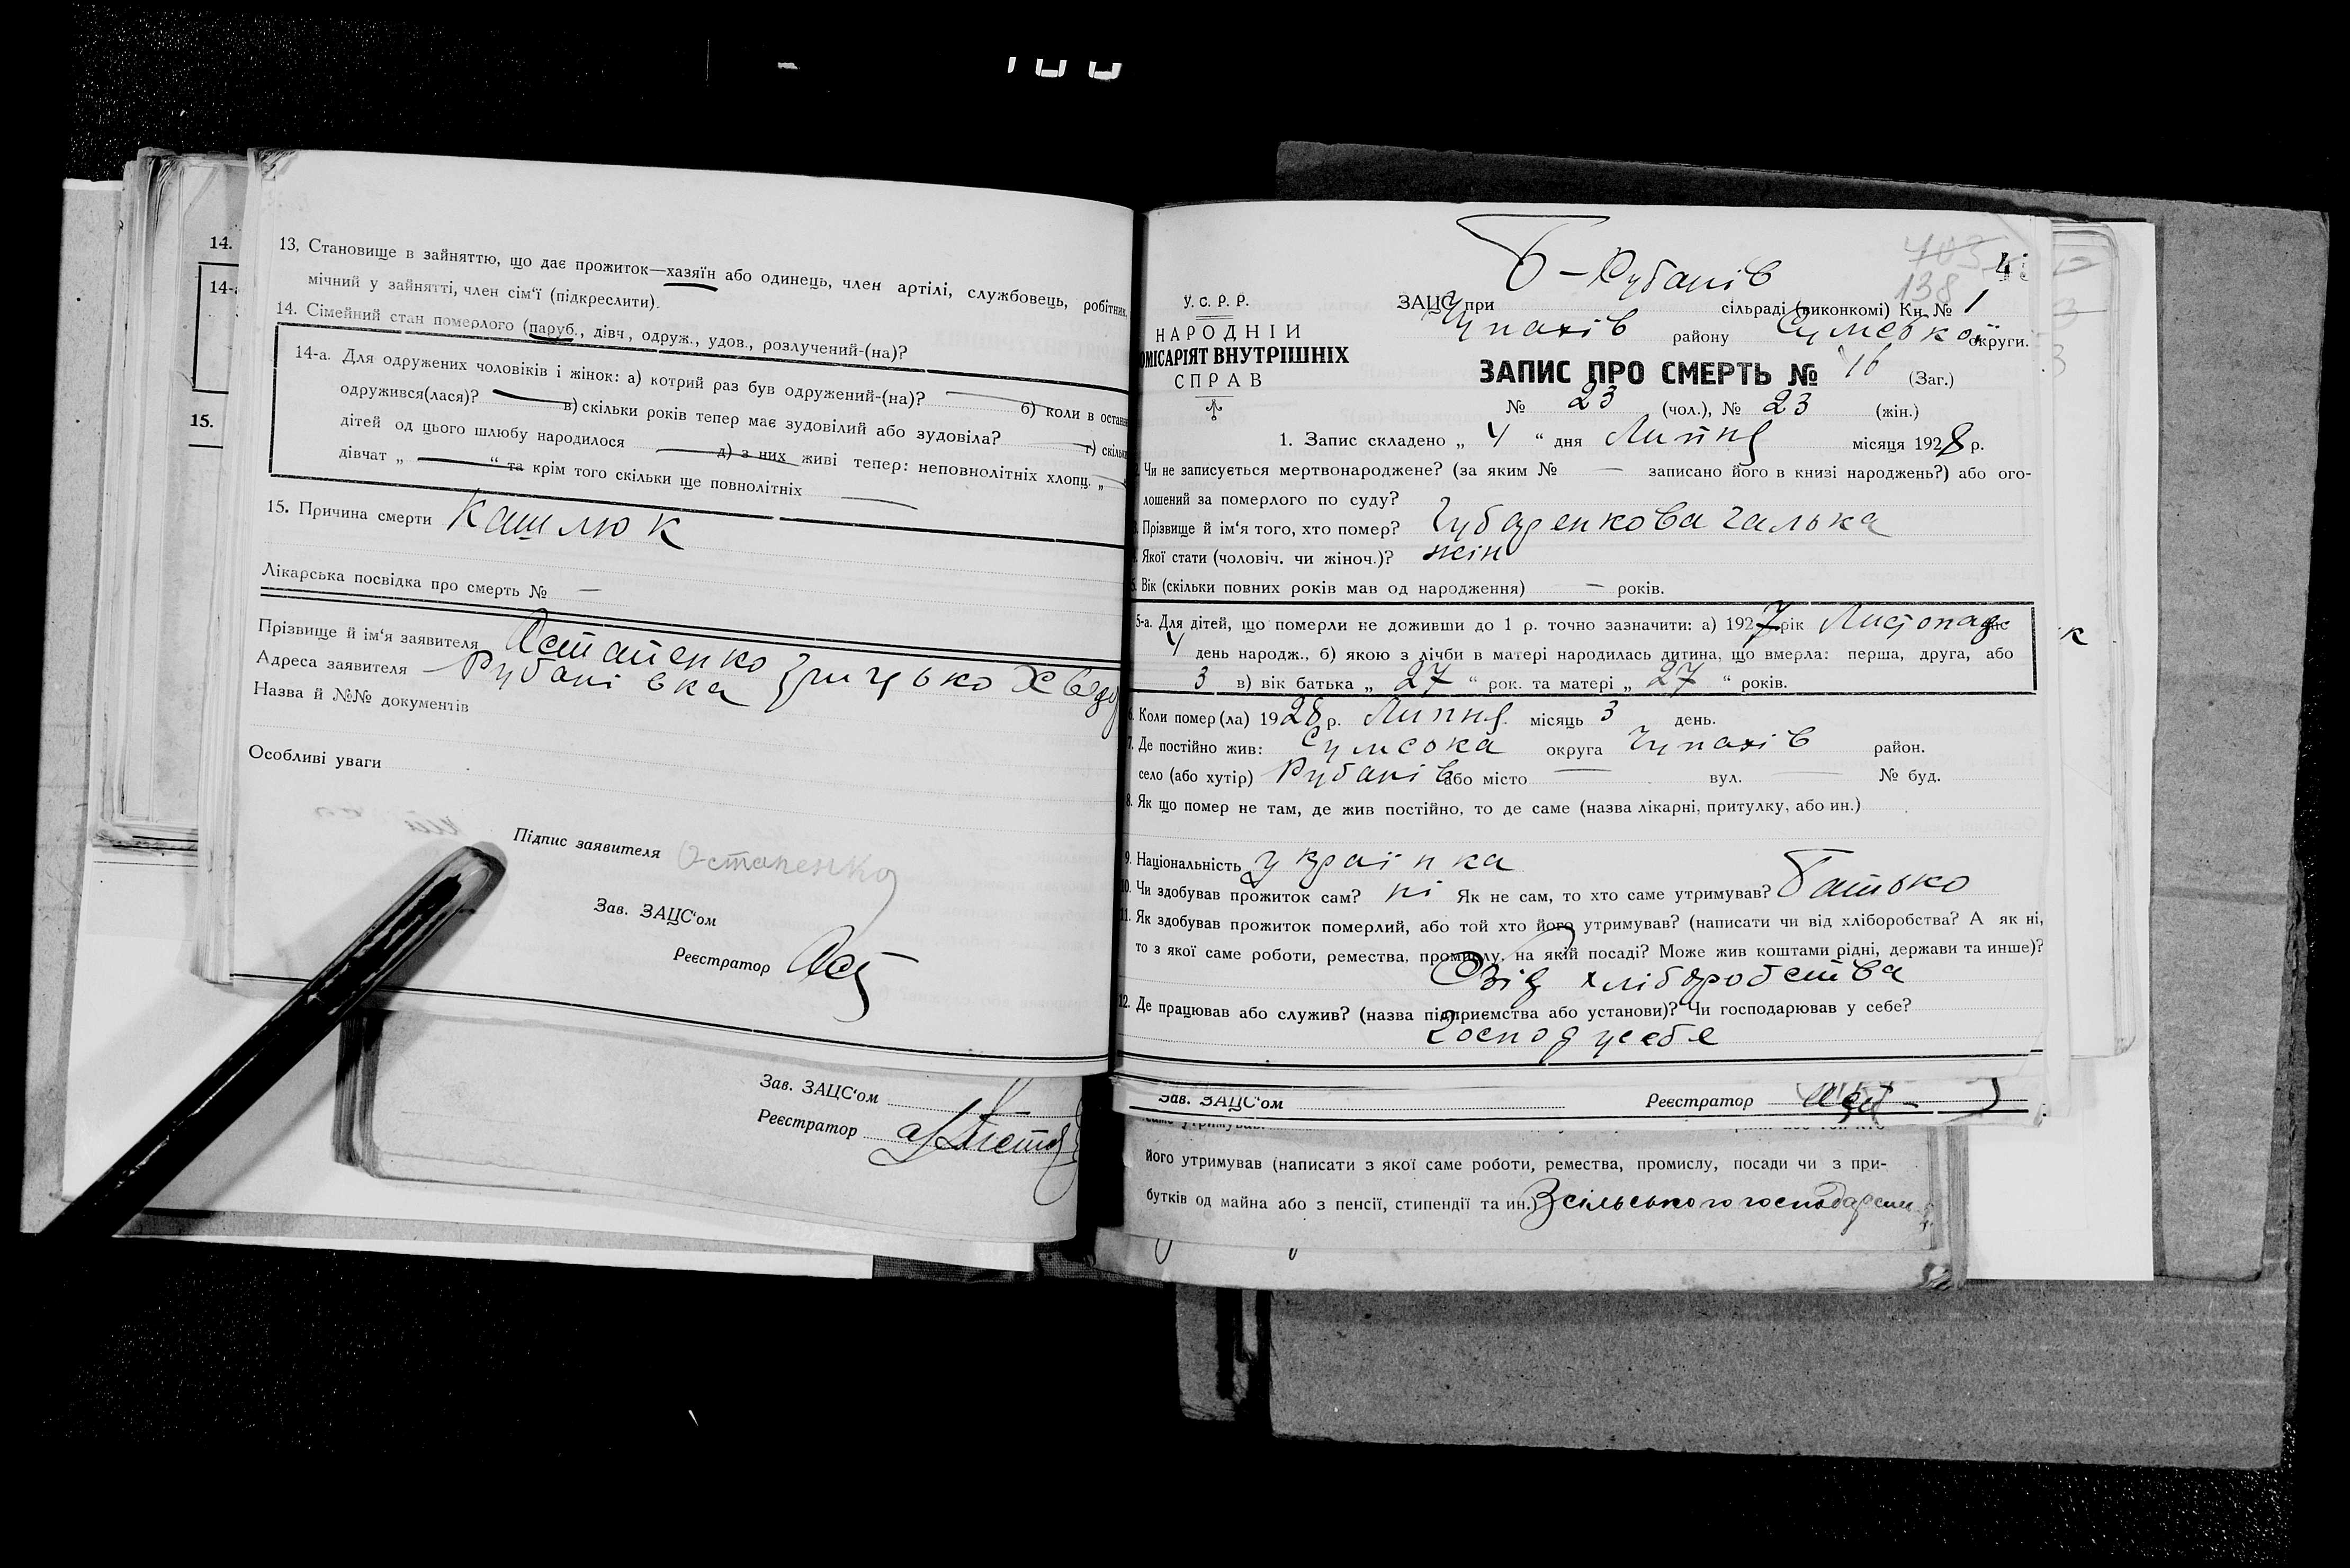 14.
14-а
15.
13. Становище в зайняттю, що дає прожиток—хазяїн або одинець, член артілі, службовець, робітник,
мічний у зайнятті, член сім'ї (підкреслити).
14. Сімейний стан померлого (паруб., дівч., одруж., удов., розлучений-(на)?
14-а. Для одружених чоловіків і жінок: а) котрий раз був одружений-(на)? б) коли в останн
одружився(лася)? в) скільки років тепер має зудовілий або зудовіла? г) скільк
дітей од цього шлюбу народилося д) з них живі тепер: неповнолітніх хлопц. „
дівчат „ “ та крім того скільки ще повнолітніх
15. Причина смерти Кашлюк
Лікарська посвідка про смерть № —
Прізвище й ім'я заявителя Остапенко Грицько Хведо
Адреса заявителя Рубанівка
Назва й №№ документів
Особливі уваги
Підпис заявителя Остапенко
Зав. ЗАЦС'ом
Реєстратор Ост
Зав. ЗАЦС'ом
Реєстратор
403
138
У. С. Р. Р.
НАРОДНІЙ
ОМІСАРІЯТ ВНУТРІШНІХ
СПРАВ
ЗАЦС при Б-Рубанів сільраді (виконкомі) Кн. № 1
Чупахів району Сумської округи.
ЗАПИС ПРО СМЕРТЬ № 46 (Заг.)
№ 23 (чол.), № 23 (жін.)
1. Запис складено „ 4 “ дня Липня місяця 1928 р.
Чи не записується мертвонароджене? (за яким № — записано його в книзі народжень?) або ого-
лошений за померлого по суду?
Прізвище й ім'я того, хто помер? Губаренкова Галька
Якої стати (чоловіч. чи жіноч.)? жін
5. Вік (скільки повних років мав од народження) — років.
5-а. Для дітей, що померли не доживши до 1 р. точно зазначити: а) 1927 рік Листопад
4 день народж., б) якою з лічби в матері народилась дитина, що вмерла: перша, друга, або
3 в) вік батька „ 27 “ рок. та матері „ 27 “ років.
6. Коли помер(ла) 1928 р. Липня місяць 3 день.
7. Де постійно жив: Сумська округа Чупахів район.
село (або хутір) Рубанів або місто — вул. — № буд.
8. Як що помер не там, де жив постійно, то де саме (назва лікарні, притулку, або ин.)
9. Національність українка
10. Чи здобував прожиток сам? ні Як не сам, то хто саме утримував? Батько
11. Як здобував прожиток померлий, або той хто його утримував? (написати чи від хліборобства? А як ні,
то з якої саме роботи, ремества, промислу, на якій посаді? Може жив коштами рідні, держави та инше)?
Звід хліборобства
12. Де працював або служив? (назва підприємства або установи)? Чи господарював у себе?
Господ усебе
Зав. ЗАЦС'ом Реєстратор
його утримував (написати з якої саме роботи, ремества, промислу, посади чи з при-
бутків од майна або з пенсії, стипендії та ин.) З сільського господарства